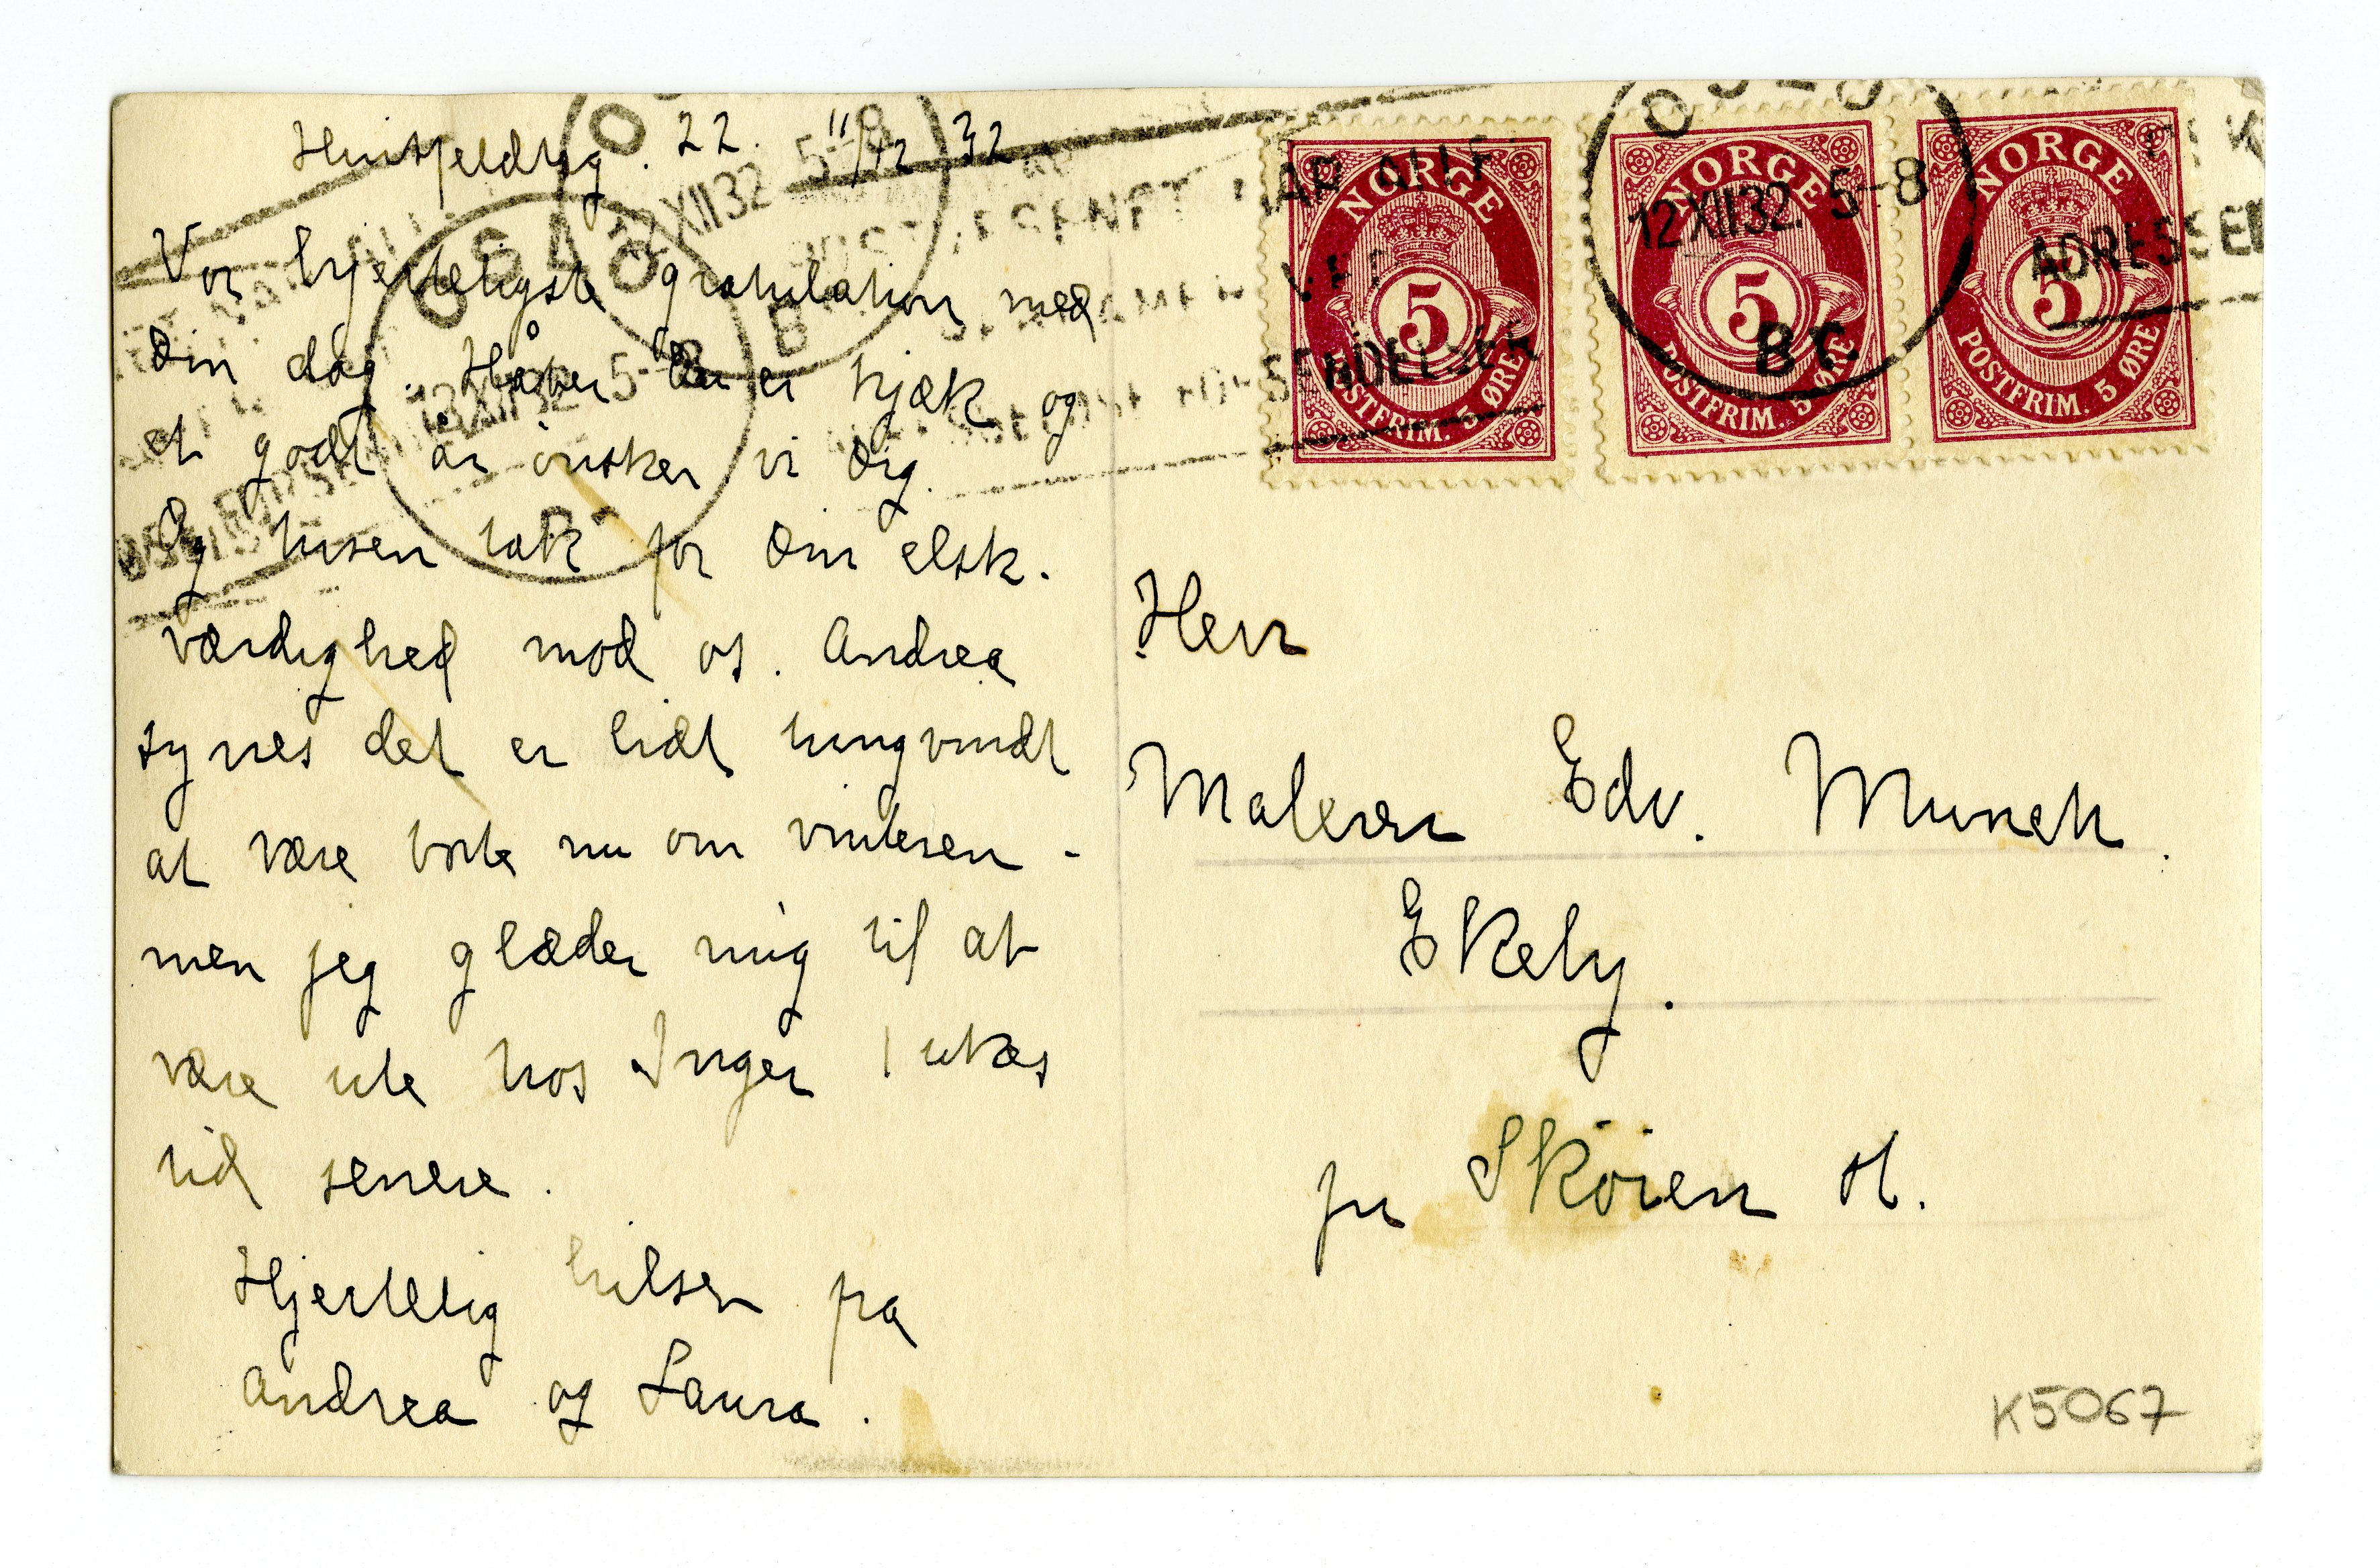 Huitfeldtsg. 22. 11/12 32
Vor hjerteligste gratulation med
Din dag. Håber Du er kjæk og
et godt år önsker vi Dig.
Og tusen tak for Din elsk-
værdighed mod os. Andrea
synes det er lidt tungvindt
at være borte nu om vinteren -
men jeg glæder mig til at
være ute hos Inger 1 ukes
tid senere.
Hjertelig hilsen fra
Andrea og Laura.
OSLO
12 XII 32 5-8
B
OSLO
13 XII 32 5-8
B
NORGE
5
POSTFRIM. 5 ØRE
NORGE
5
POSTFRIM. 5 ØRE
NORGE
5
POSTFRIM. 5 ØRE
OSLO
12 XII 32. 5-8
Br.
HAR ALLE
VED
SENDELSER
ADRESSEN
Herr
Maleren Edv. Munch.
Ekely.
pr Sköien st.
K5067